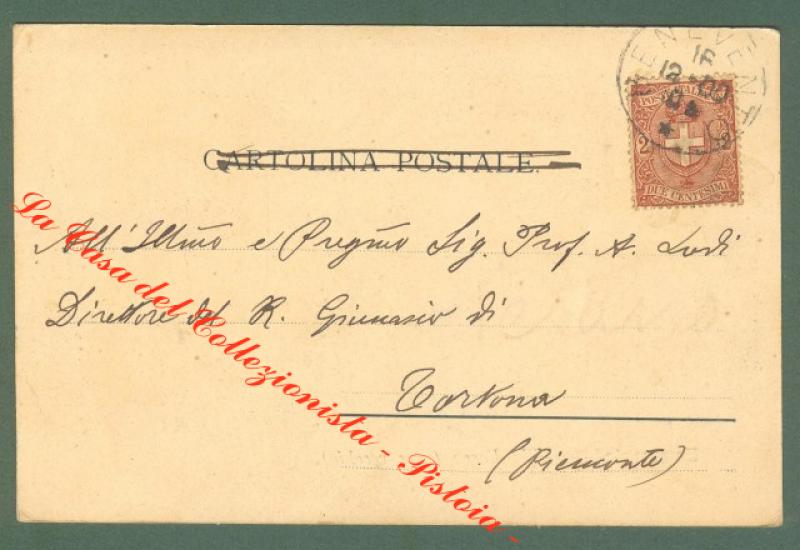 BENEVENT
16
12-00
POSTE ITALIANE
2 2
DUE CENTESIMI
CARTOLINA POSTALE.
All'Illmo e Pregmo Sig. Prof. A. Lodi
Direttore del R. Ginnasio di
Tortona
(Piemonte)
La Casa del Collezionista - Pistoia -